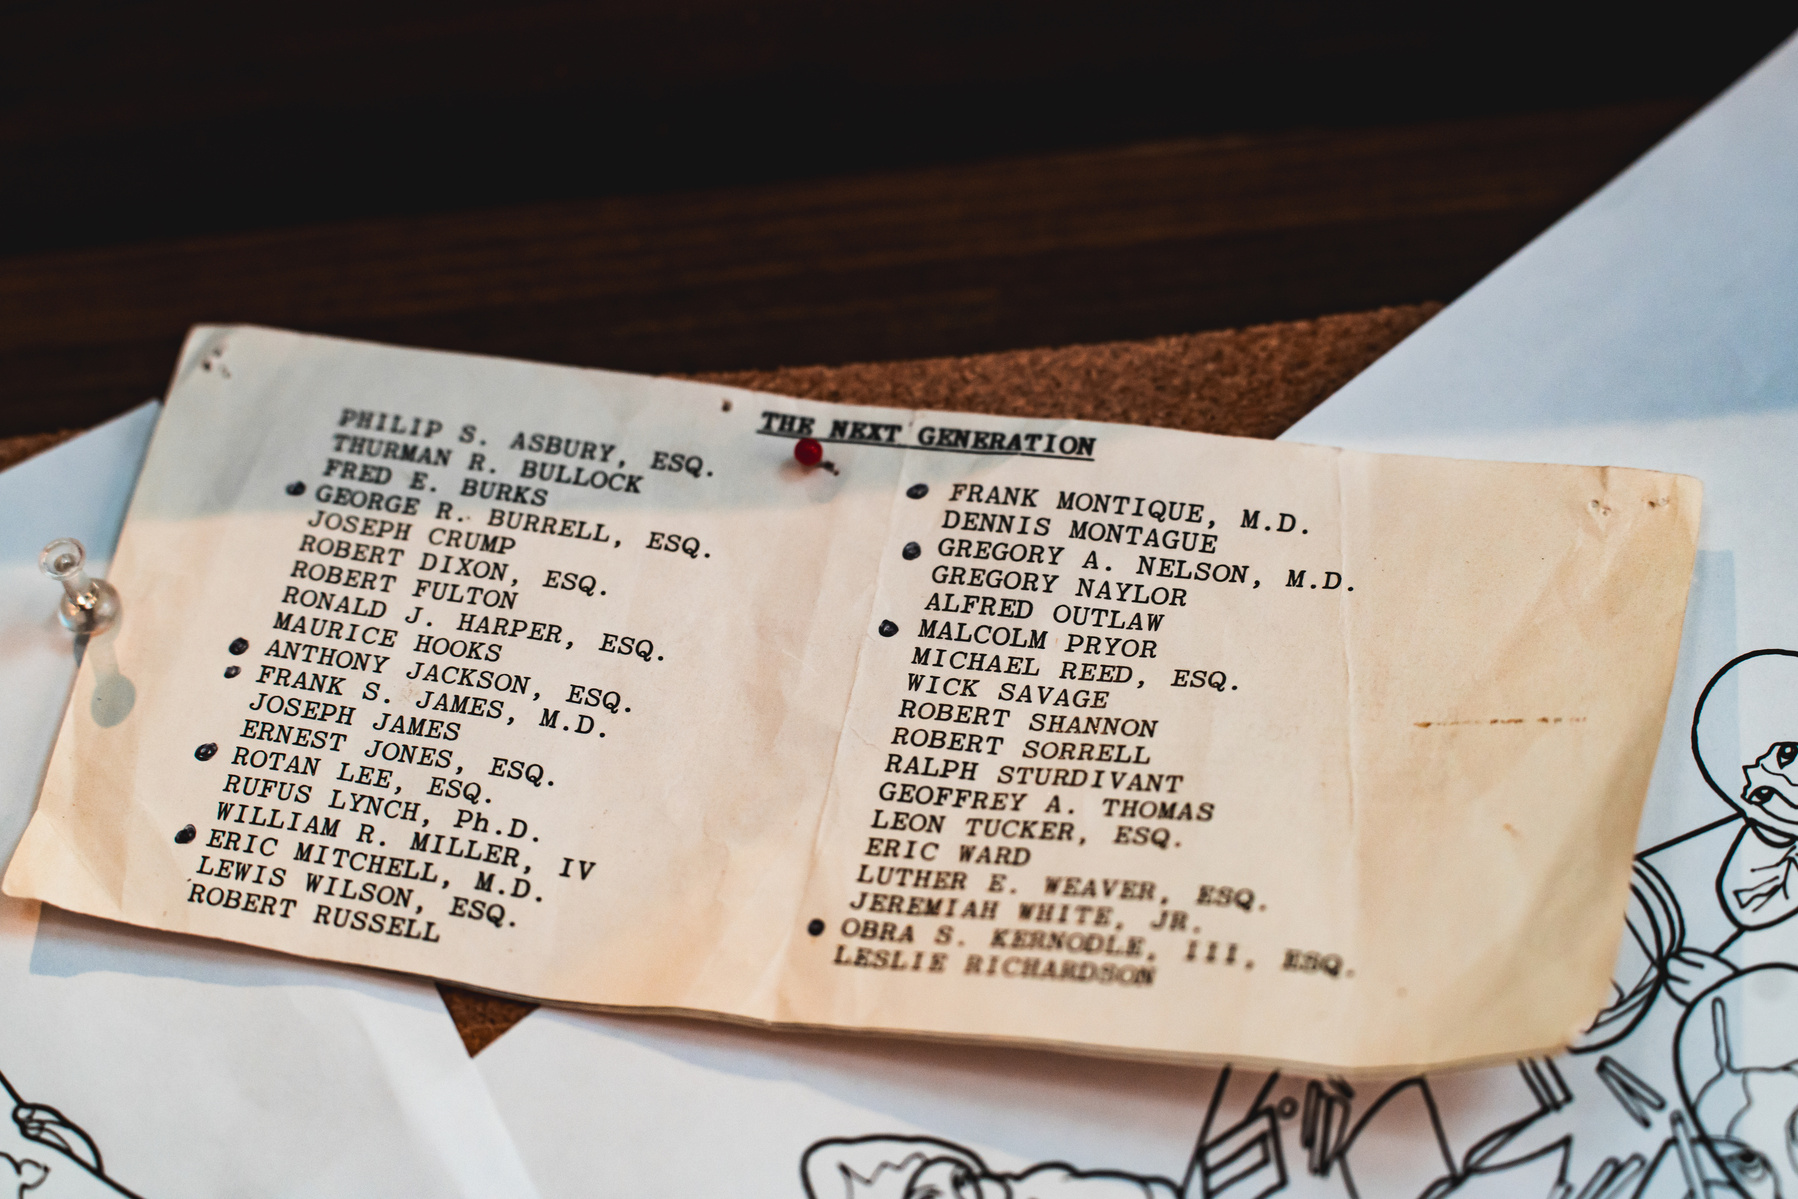 THE NEXT GENERATION
PHILIP S. ASBURY, ESQ.
THURMAN R. BULLOCK
FRED E. BURKS
GEORGE R. BURRELL, ESQ.
JOSEPH CRUMP
ROBERT DIXON, ESQ.
ROBERT FULTON
RONALD J. HARPER, ESQ.
MAURICE HOOKS
ANTHONY JACKSON, ESQ.
FRANK S. JAMES, M.D.
JOSEPH JAMES
ERNEST JONES, ESQ.
ROTAN LEE, ESQ.
RUFUS LYNCH, Ph.D.
WILLIAM R. MILLER, IV
ERIC MITCHELL, M.D.
LEWIS WILSON, ESQ.
ROBERT RUSSELL
FRANK MONTIQUE, M.D.
DENNIS MONTAGUE
GREGORY A. NELSON, M.D.
GREGORY NAYLOR
ALFRED OUTLAW
MALCOLM PRYOR
MICHAEL REED, ESQ.
WICK SAVAGE
ROBERT SHANNON
ROBERT SORRELL
RALPH STURDIVANT
GEOFFREY A. THOMAS
LEON TUCKER, ESQ.
ERIC WARD
LUTHER E. WEAVER, ESQ.
JEREMIAH WHITE, JR.
OBRA S. KERNODLE, III, ESQ.
LESLIE RICHARDSON